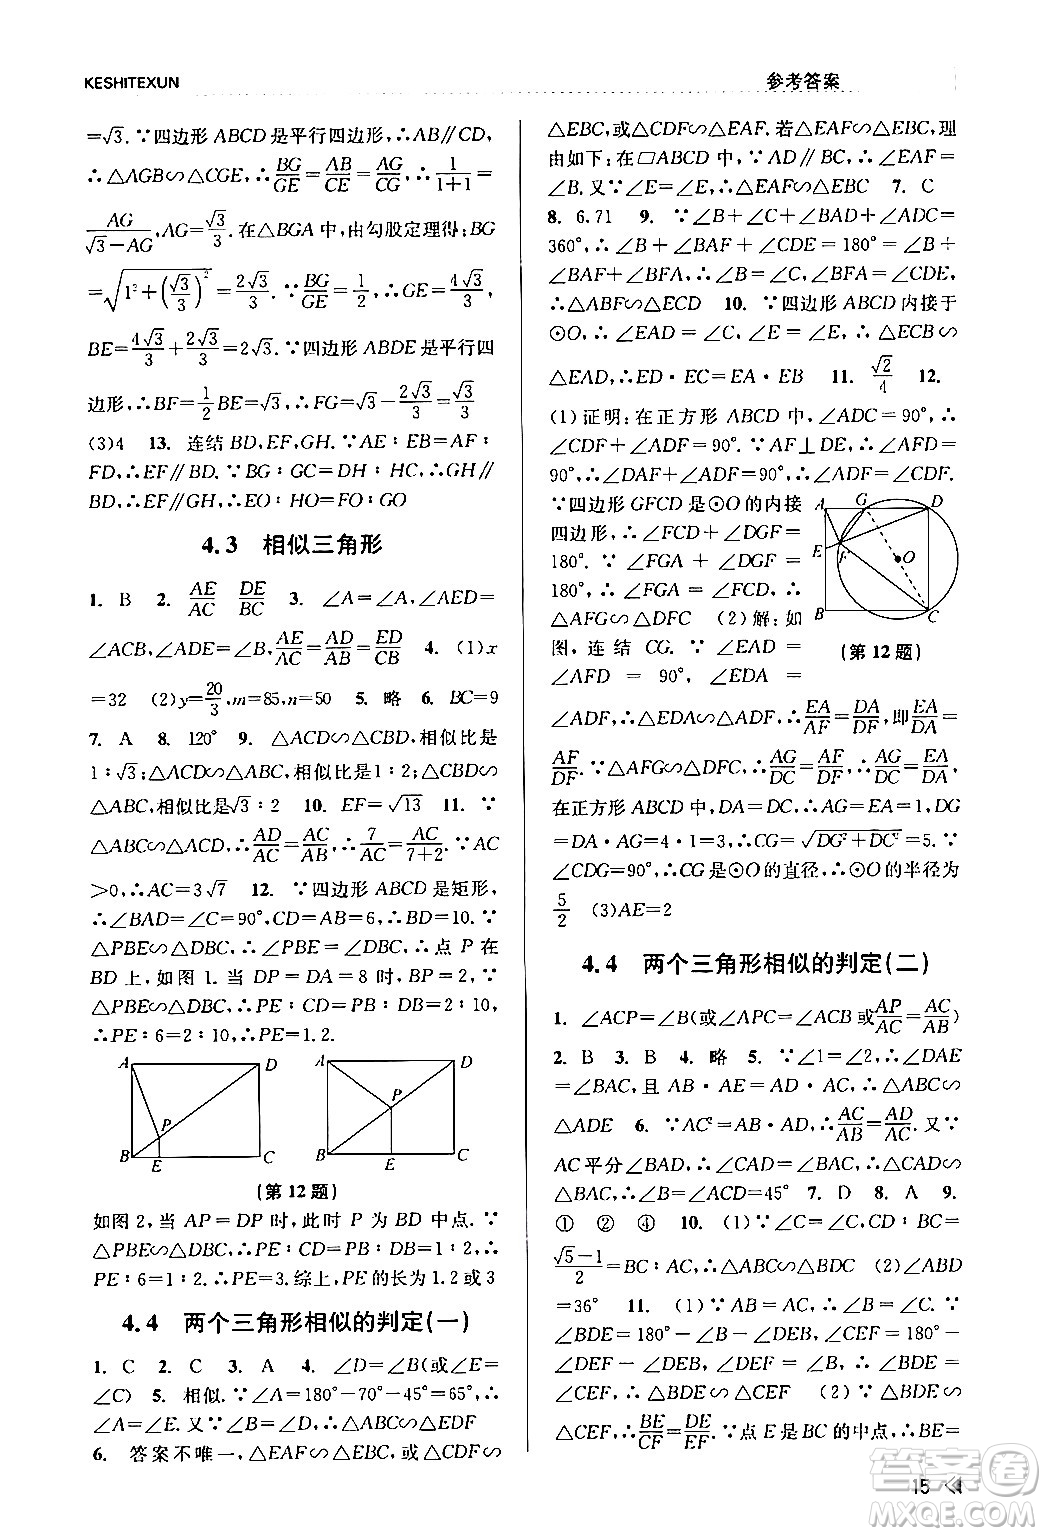 KESHITEXUN
参考答案
=√3. ∵四边形 ABCD 是平行四边形, ∴AB∥CD,
∴△AGB∽△CGE, ∴BG/GE=AB/CE=AG/CG, ∴1/(1+1)=
AG/(√3-AG), AG=√3/3. 在△BGA 中, 由勾股定理得: BG
=√(1²+(√3/3)²)=2√3/3. ∵BG/GE=1/2, ∴GE=4√3/3,
BE=4√3/3+2√3/3=2√3. ∵四边形 ABDE 是平行四
边形, ∴BF=1/2BE=√3, ∴FG=√3-2√3/3=√3/3
(3)4 13. 连结 BD, EF, GH. ∵AE∶EB=AF∶
FD, ∴EF∥BD. ∵BG∶GC=DH∶HC, ∴GH∥
BD, ∴EF∥GH, ∴EO∶HO=FO∶GO
4.3 相似三角形
1. B 2. AE/AC DE/BC 3. ∠A=∠A, ∠AED=
∠ACB, ∠ADE=∠B, AE/AC=AD/AB=ED/CB 4. (1)x
=32 (2)y=20/3, m=85, n=50 5. 略 6. BC=9
7. A 8. 120° 9. △ACD∽△CBD, 相似比是
1∶√3; △ACD∽△ABC, 相似比是1∶2; △CBD∽
△ABC, 相似比是√3∶2 10. EF=√13 11. ∵
△ABC∽△ACD, ∴AD/AC=AC/AB, ∴7/AC=AC/(7+2). ∵AC
>0, ∴AC=3√7 12. ∵四边形 ABCD 是矩形,
∴∠BAD=90°, CD=AB=6, ∴BD=10. ∵
△PBE∽△DBC, ∴∠PBE=∠DBC, ∴点 P 在
BD 上, 如图 1. 当 DP=DA=8 时, BP=2, ∵
△PBE∽△DBC, ∴PE∶CD=PB∶DB=2∶10,
∴PE∶6=2∶10, ∴PE=1.2.
A D P B E C
A D P B E C
(第12题)
如图 2, 当 AP=DP 时, 此时 P 为 BD 中点. ∵
△PBE∽△DBC, ∴PE∶CD=PB∶DB=1∶2, ∴
PE∶6=1∶2. ∴PE=3. 综上, PE 的长为 1.2 或 3
4.4 两个三角形相似的判定(一)
1. C 2. C 3. A 4. ∠D=∠B(或∠E=
∠C) 5. 相似. ∵∠A=180°-70°-45°=65°, ∴
∠A=∠E. 又∵∠B=∠D, ∴△ABC∽△EDF
6. 答案不唯一, △EAF∽△EBC, 或△CDF∽
△EBC, 或△CDF∽△EAF. 若△EAF∽△EBC, 理
由如下: 在▱ABCD 中, ∵AD∥BC, ∴∠EAF=
∠B. 又∵∠E=∠E, ∴△EAF∽△EBC 7. C
8. 6.71 9. ∵∠B+∠C+∠DAB+∠ADC=
360°, ∴∠B+∠BAF+∠CDE=180°=∠B+
∠BAF+∠AFB, ∴∠B=∠C, ∠AFB=∠CDE,
∴△ABF∽△ECD 10. ∵四边形 ABCD 内接于
⊙O, ∴∠EAD=∠C. 又∵∠E=∠E, ∴△ECB∽
△EAD, ∴ED·EC=EA·EB 11. √2/4 12.
(1)证明: 在正方形 ABCD 中, ∠ADC=90°, ∴
∠CDF+∠ADF=90°. ∵AF⊥DE, ∴∠AFD=
90°, ∴∠DAF+∠ADF=90°, ∴∠ADF=∠CDF.
∵四边形 GFCD 是⊙O 的内接
四边形, ∴∠FCD+∠DGF=
180°. ∵∠FGA+∠DGF=
180°, ∴∠FGA=∠FCD, ∴
△AFG∽△DFC (2)解: 如
图, 连结 CG. ∵∠EAD=
∠AFD=90°, ∠EDA=
A G D E F O B C
(第12题)
∠ADF, ∴△EDA∽△ADF, ∴EA/AF=DA/DF, 即EA/DA=
AF/DF. ∵△AFG∽△DFC, ∴AG/DC=AF/DF, ∴AG/DC=EA/DA,
在正方形 ABCD 中, DA=DC, ∴AG=EA=1, DG
=DA-AG=4-1=3, ∴CG=√(DG²+DC²)=5. ∵
∠CDG=90°, ∴CG 是⊙O 的直径, ∴⊙O 的半径为
5/2 (3)AE=2
4.4 两个三角形相似的判定(二)
1. ∠ACP=∠B(或∠APC=∠ACB 或AP/AC=AC/AB)
2. B 3. B 4. 略 5. ∵∠1=∠2, ∴∠DAE
=∠BAC, 且 AB·AE=AD·AC, ∴△ABC∽
△ADE 6. ∵AC²=AB·AD, ∴AC/AB=AD/AC. 又∵
AC 平分∠BAD, ∴∠CAD=∠BAC, ∴△CAD∽
△BAC, ∴∠B=∠ACD=45° 7. D 8. A 9.
① ② ④ 10. (1)∵∠C=∠C, DC∶BC=
(√5-1)/2=BC∶AC, ∴△ABC∽△BDC (2)∠ABD
=36° 11. (1)∵AB=AC, ∴∠B=∠C. ∵
∠BDE=180°-∠B-∠DEB, ∠CEF=180°-
∠DEF-∠DEB, ∠DEF=∠B, ∴∠BDE=
∠CEF, ∴△BDE∽△CEF (2)∵△BDE∽
△CEF, ∴BE/CF=DE/EF. ∵点 E 是 BC 的中点, ∴
15
答案圈
MXQE.COM